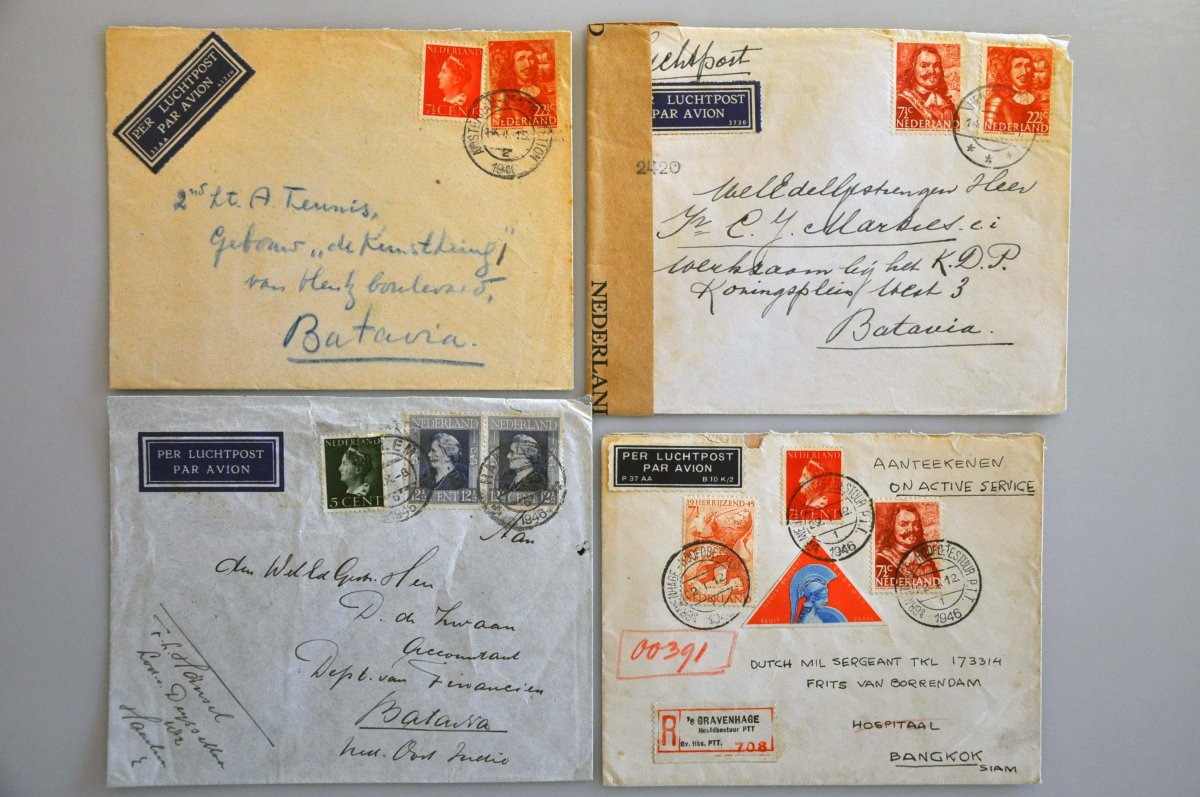 PER LUCHTPOST
PAR AVION
37 AA
NEDERLAND
7½ CENT
22½c
NEDERLAND
1946
2nd Lt. A. Teunis,
Gebouw „de Kunstkring"
van Heutz boulevard,
Batavia.
Luchtpost
PER LUCHTPOST
PAR AVION
3730
7½c
NEDERLAND
22½c
NEDERLAND
2420
NEDERLAND
WelEdelGestrengen Heer
Ir C. J.
werkzaam bij het K.D.P.
Koningsplein West 3
Batavia.
PER LUCHTPOST
PAR AVION
NEDERLAND
5 CENT
NEDERLAND
12½ CENT
NEDERLAND
12½ CENT 12½
1946
1946
Aan
den WelEd. Gestr. Heer
D. de Zwaan
Accountant
Dept. van Financien
Batavia
Ned. Oost Indie
PER LUCHTPOST
PAR AVION
P 37 AA B 10 K/2
AANTEEKENEN
ON ACTIVE SERVICE
1946
19 HERRIJZEND 45
7½c
NEDERLAND
NEDERLAND
7½ CENT
7½c
NEDERLAND
1946
00391
DUTCH MIL SERGEANT TKL 173314
FRITS VAN BORRENDAM
HOSPITAAL
BANGKOK
SIAM
R
's GRAVENHAGE
Hoofdbestuur PTT
Gr. Hbs. PTT. 708